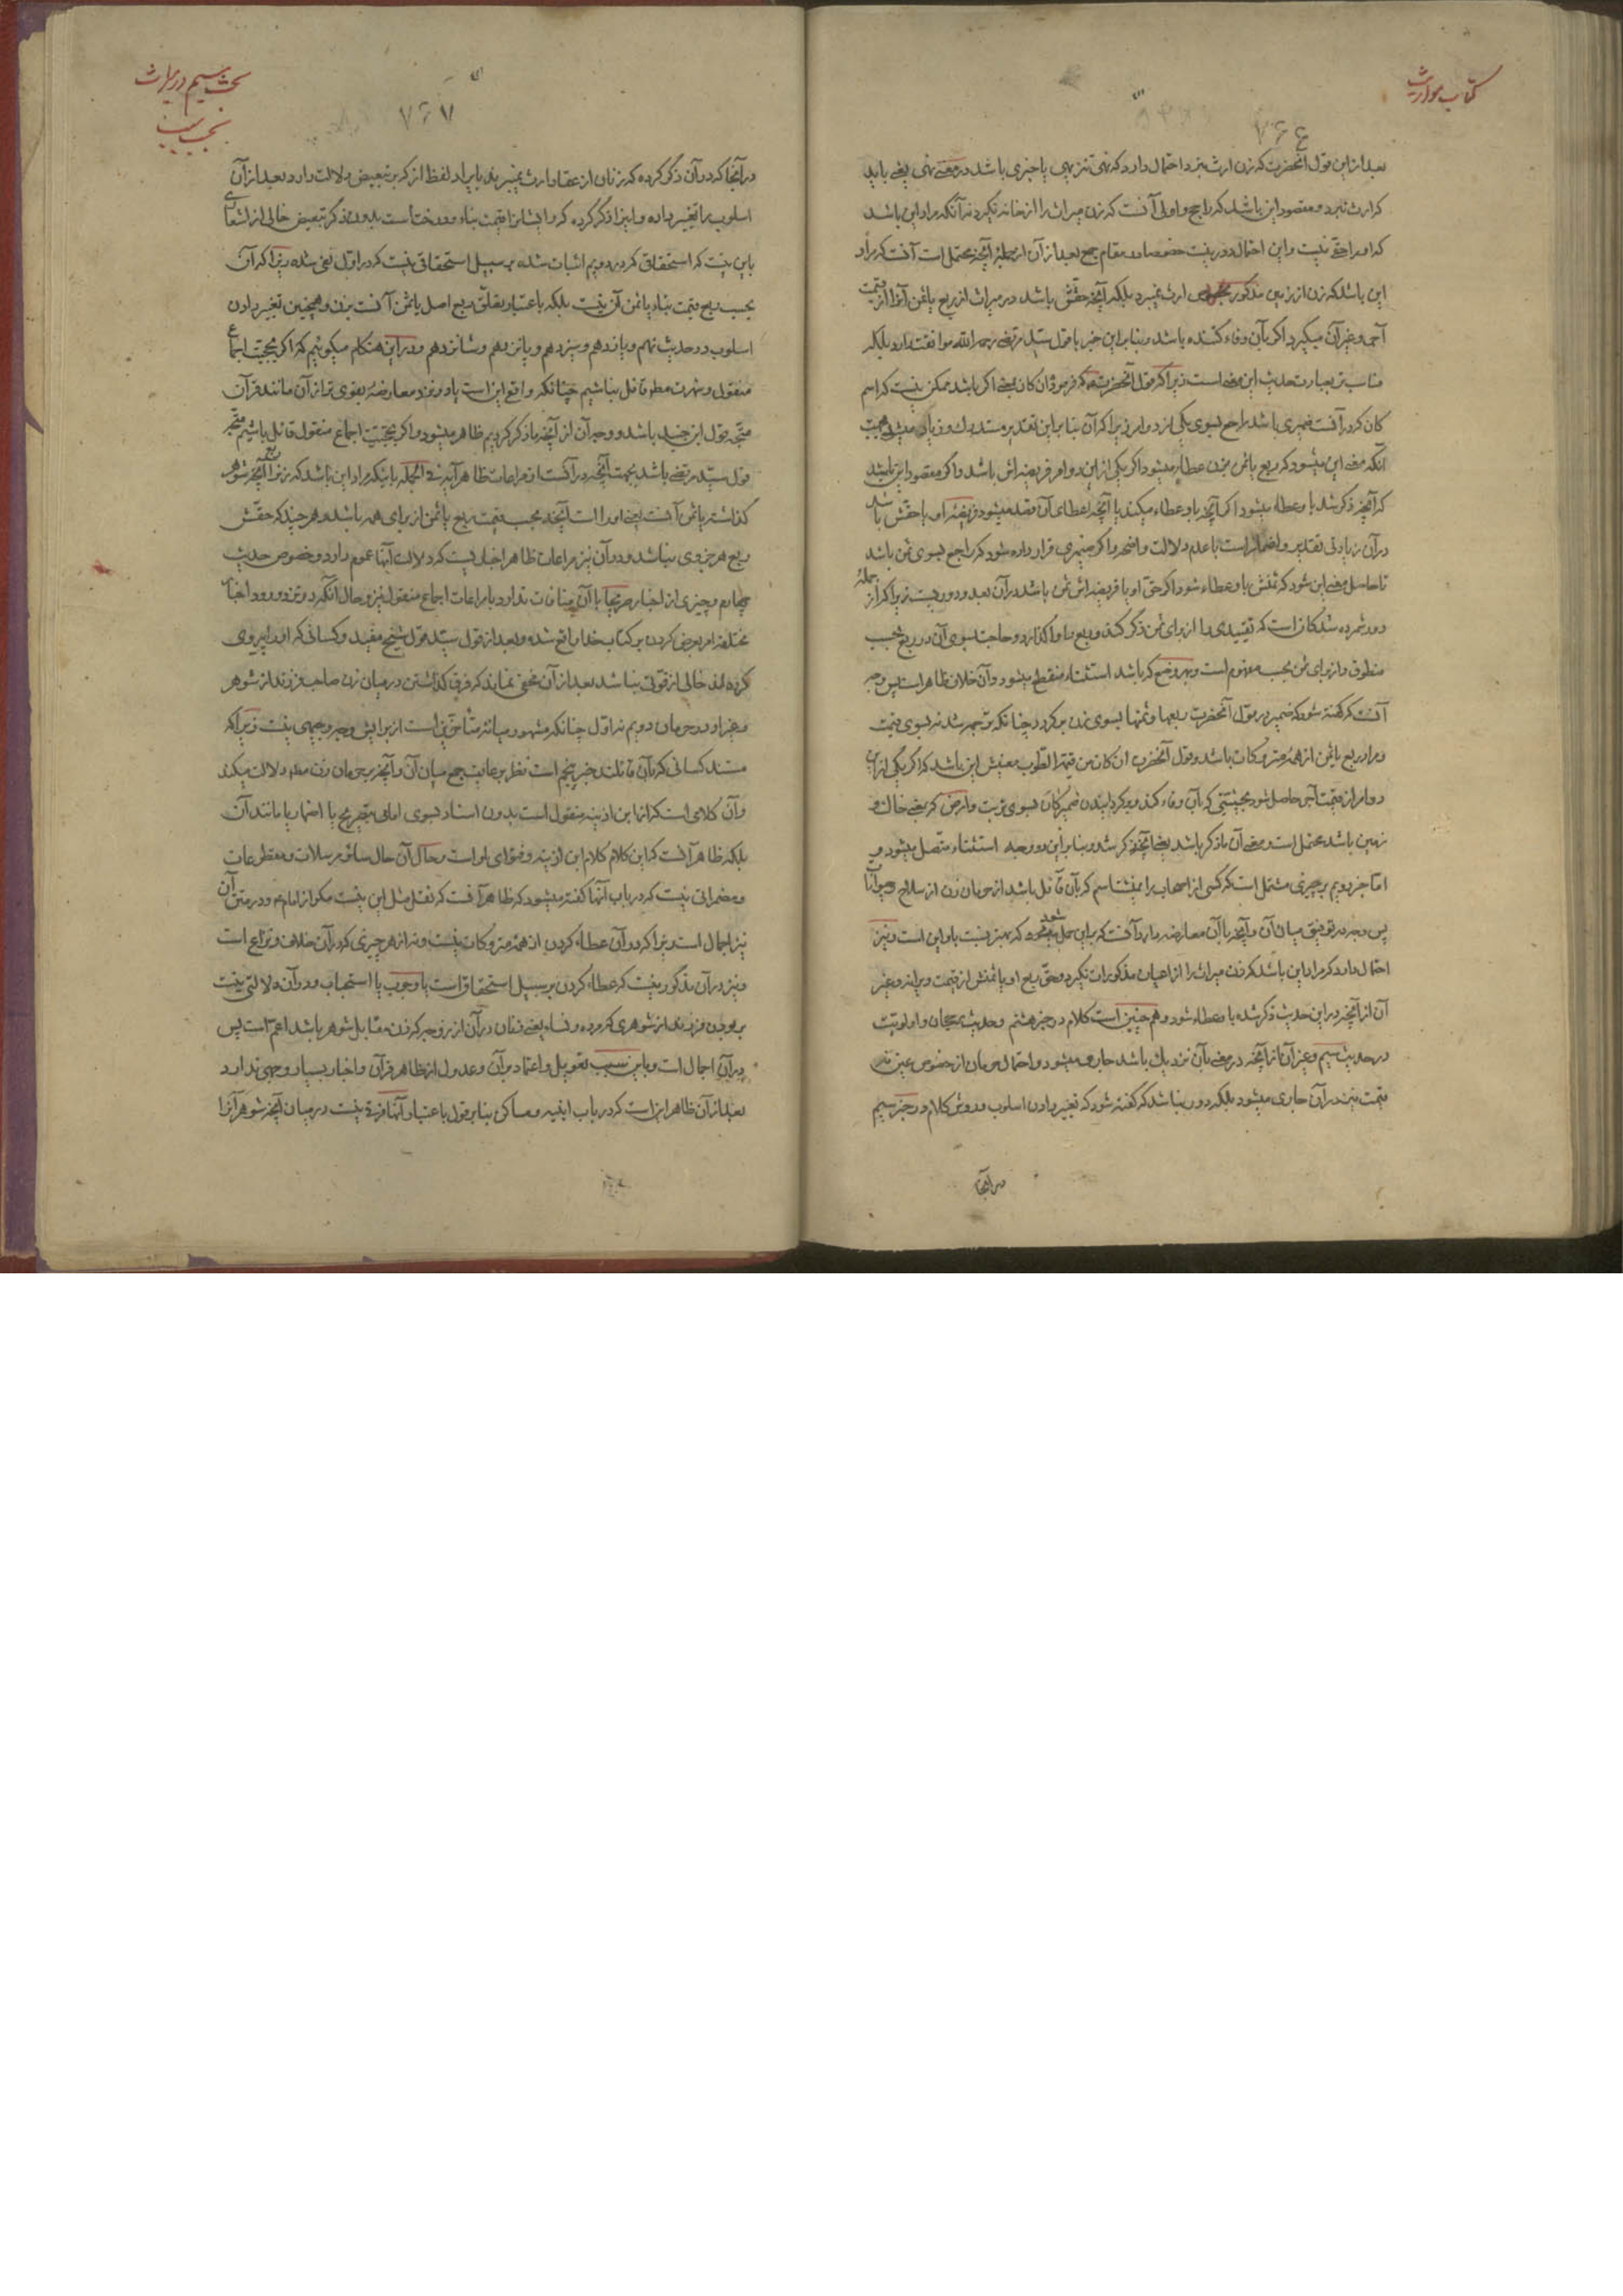 کتاب مواریث
۷۶۶
بعد از این قول آنحضرت که زن ارث نبرد احتمال دارد که نهی تنزیهی یا خبری باشد در معنی نهی یعنی باید
که ارث نبرد و مقصود این باشد که راجح و اولی آنست که زن میراث را از خانه نگیرد نه آنکه مراد این باشد
که او را حقی نیست و این احتمال دور نیست خصوصا در مقام جمع بعد از آن از جمله آنچه محتمل است آنست که مراد
این باشد که زن از زمین مذکور ارث نمیبرد بلکه آنچه حقش باشد در میراث از ربع یا ثمن آنرا از قیمت
آجر و غیر آن میگیرد اگر بآن وفاء کننده باشد و بنا بر این خبر با قول سید مرتضی رحمه الله موافقت دارد بلکه
مناسب تر بعبارت حدیث این معنی است زیرا که قول آنحضرت که فرمود ان کان یعنی اگر باشد ممکن نیست که اسم
کان که در آنست ضمیری باشد راجع بسوی یکی از دو امر زیرا که آن بنا بر این تقدیر مستدرک و زیاد میشود بجهت
آنکه معنی این میشود که ربع یا ثمن بزن عطاء میشود اگر یکی از این دو امر فریضه‌اش باشد و اگر مقصود این باشد
که آنچه ذکر شد باو عطاء میشود اگر آنچه باو عطاء میکند یا آنچه اعطای آن قصد میشود فریضه او یا حقش باشد
در آن زیادتی تقدیر و اضمار است با عدم دلالت واضحه و اگر ضمیری قرار داده شود که راجع بسوی ثمن باشد
تا حاصل معنی این شود که ثمنش باو عطاء شود اگر حق او یا فریضه‌اش ثمن باشد در آن بعد و دوریست زیرا که از جمله
دور شمرده شدگان است که تقییدی را از برای ثمن ذکر کند و ربع را واگذارد و حاجت بسوی آن در ربع بحسب
منطوق و از برای ثمن بحسب مفهوم است و بهر وضع که باشد استثناء منقطع میشود و آن خلاف ظاهر است پس وجه
آنست که گفته شود که ضمیر در قول آنحضرت ربعها و ثمنها بسوی زن بر گردد چنانکه ترجمه شد نه بسوی قیمت
و مراد ربع یا ثمن از همه متروکات باشد و قول آنحضرت ان کان من قیمة الطوب معنیش این باشد که اگر یکی از این
دو امر از قیمت آجر حاصل شود بحیثیتی که بآن وفاء کند و برگردانیدن ضمیر کان بسوی تربت و ارض که یعنی خاک و
زمین باشد محتمل است و معنی آن ما ذکر باشد یعنی آنچه ذکر شد و بنا بر این دو وجه استثناء متصل میشود و
اما خبر دویم بر چیزی مشتمل است که کسی از اصحاب را نمیشناسم که بآن قائل باشد از حرمان زن از سلاح و حیوانات
پس وجه در توفیق میان آن و آنچه با آن معارضه دارد آنست که بر این حمل شود که بهتر نیست باو این است و نیز
احتمال دارد که مراد این باشد که زن میراث را از اعیان مذکورات نگیرد و حق ربع او یا ثمنش از قیمت ویرانه و غیر
آن از آنچه در این حدیث ذکر شده باو عطاء شود و هم چنین است کلام در خبر هشتم و حدیث رجحان و اولویت
در حدیث سیم و غیر آن از آنچه در معنی بآن نزدیک باشد جاری میشود و احتمال حرمان از خصوص عین نه
قیمت نیز در آن جاری میشود بلکه دور نباشد که گفته شود که تغییر دادن اسلوب و روش کلام در خبر سیم
در آنجا
بحث سیم در میراث
۷۶۷
در آنجا که در آن ذکر کرده که زنان از عقار ارث نمیبرند بایراد لفظ از که بر تبعیض دلالت دارد بعد از آن
اسلوب را تغییر داده و این را ذکر کرده که و ایشانرا قیمت بناء و درختانست بدون ذکر تبعیض خالی از اشعاری
باین نیست که استحقاق که در دویم اثبات شده بر سبیل استحقاقی نیست که در اول نفی شده زیرا که آن
بحسب ربع قیمت بناء یا ثمن آن نیست بلکه باعتبار تعلق ربع اصل یا ثمن آنست بزن و همچنین تغییر دادن
اسلوب در حدیث نهم و یازدهم و سیزدهم و پانزدهم و شانزدهم و در این هنگام میگوئیم که اگر بحجیت اجماع
منقول و شهرت مطلقا قائل نباشیم چنانکه واقع این است یا در نزد معارضهٔ بقوی تر از آن مانند قرآن
متجه قول ابن جنید باشد و وجه آن از آنچه ما ذکر کردیم ظاهر میشود و اگر بحجیت اجماع منقول قائل باشیم متجه
قول سید مرتضی باشد بجهت آنچه در آنست از مراعات ظاهر آیه فی الجمله باینکه مراد این باشد که زنرا ربع آنچه شوهر
گذاشته یا ثمن آنست یعنی او را است آنچه بحسب قیمت ربع یا ثمن از برای همه باشد و هر چند که حقش
ربع هر جزوی نباشد و در آن نیز مراعات ظاهر اخباریست که دلالت آنها عموم دارد و خصوص حدیث
چهارم و چیزی از اخبار صریحا با آن منافات ندارد با مراعات اجماع منقول نیز و حال آنکه در نزد ورود اخبار
مختلفه امر بعرض کردن بر کتاب خدا واقع شده و بعد از قول سید قول شیخ مفید و کسانی که او را پیروی
کرده‌اند خالی از قوتی نباشد بعد از آن مخفی نماند که فرق گذاشتن در میان زن صاحب فرزند از شوهر
و غیر او در حرمان دویم نه اول چنانکه مشهور میانه متأخرین است از برایش وجه وجیهی نیست زیرا که
مستند کسانی که بآن قائلند خبر پنجم است نظر برعایت جمع میان آن و آنچه بر حرمان زن مطلقا دلالت میکند
و آن کلامی است که از ابن اذینه منقول است بدون اسناد بسوی امامی بتصریح یا اضمار یا مانند آن
بلکه ظاهر آنست که این کلام کلام ابن اذینه و فتوای او است و حال آن حال سائر مرسلات و مقطوعات
و مضمراتی نیست که در باب آنها گفته میشود که ظاهر آنست که نقل مثل این نیست مگر از امام و در متن آن
نیز اجمال است زیرا که در آن عطاء کردن از همه متروکات نیست و نه از هر چیزی که در آن خلاف و نزاع است
و نیز در آن مذکور نیست که عطاء کردن بر سبیل استحقاق است یا وجوب یا استحباب و در آن دلالتی نیست
بر بودن فرزند از شوهری که مرده و نساء یعنی زنان در آن از زوجه که زن مقابل شوهر باشد اعم است پس
در آن اجمال است و باین سبب تعویل و اعتماد بر آن و عدول از ظاهر قرآن و اخبار بسیار وجهی ندارد
بعد از آن ظاهر این است که در باب ابنیه و مساکن بنا بر قول باعتبار آنها فرقی نیست در میان آنچه شوهر آنرا